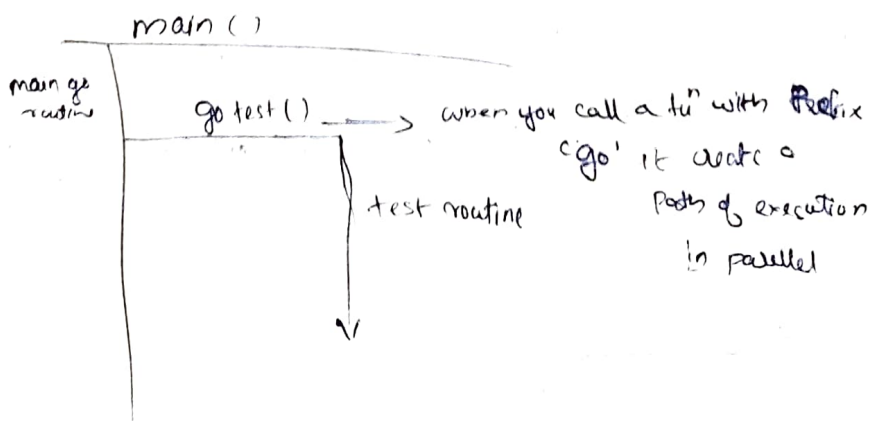 main ()
main go
routine
go test () when you call a fuⁿ with Prefix
'go' it create a
Path of execution
in parallel
test routine